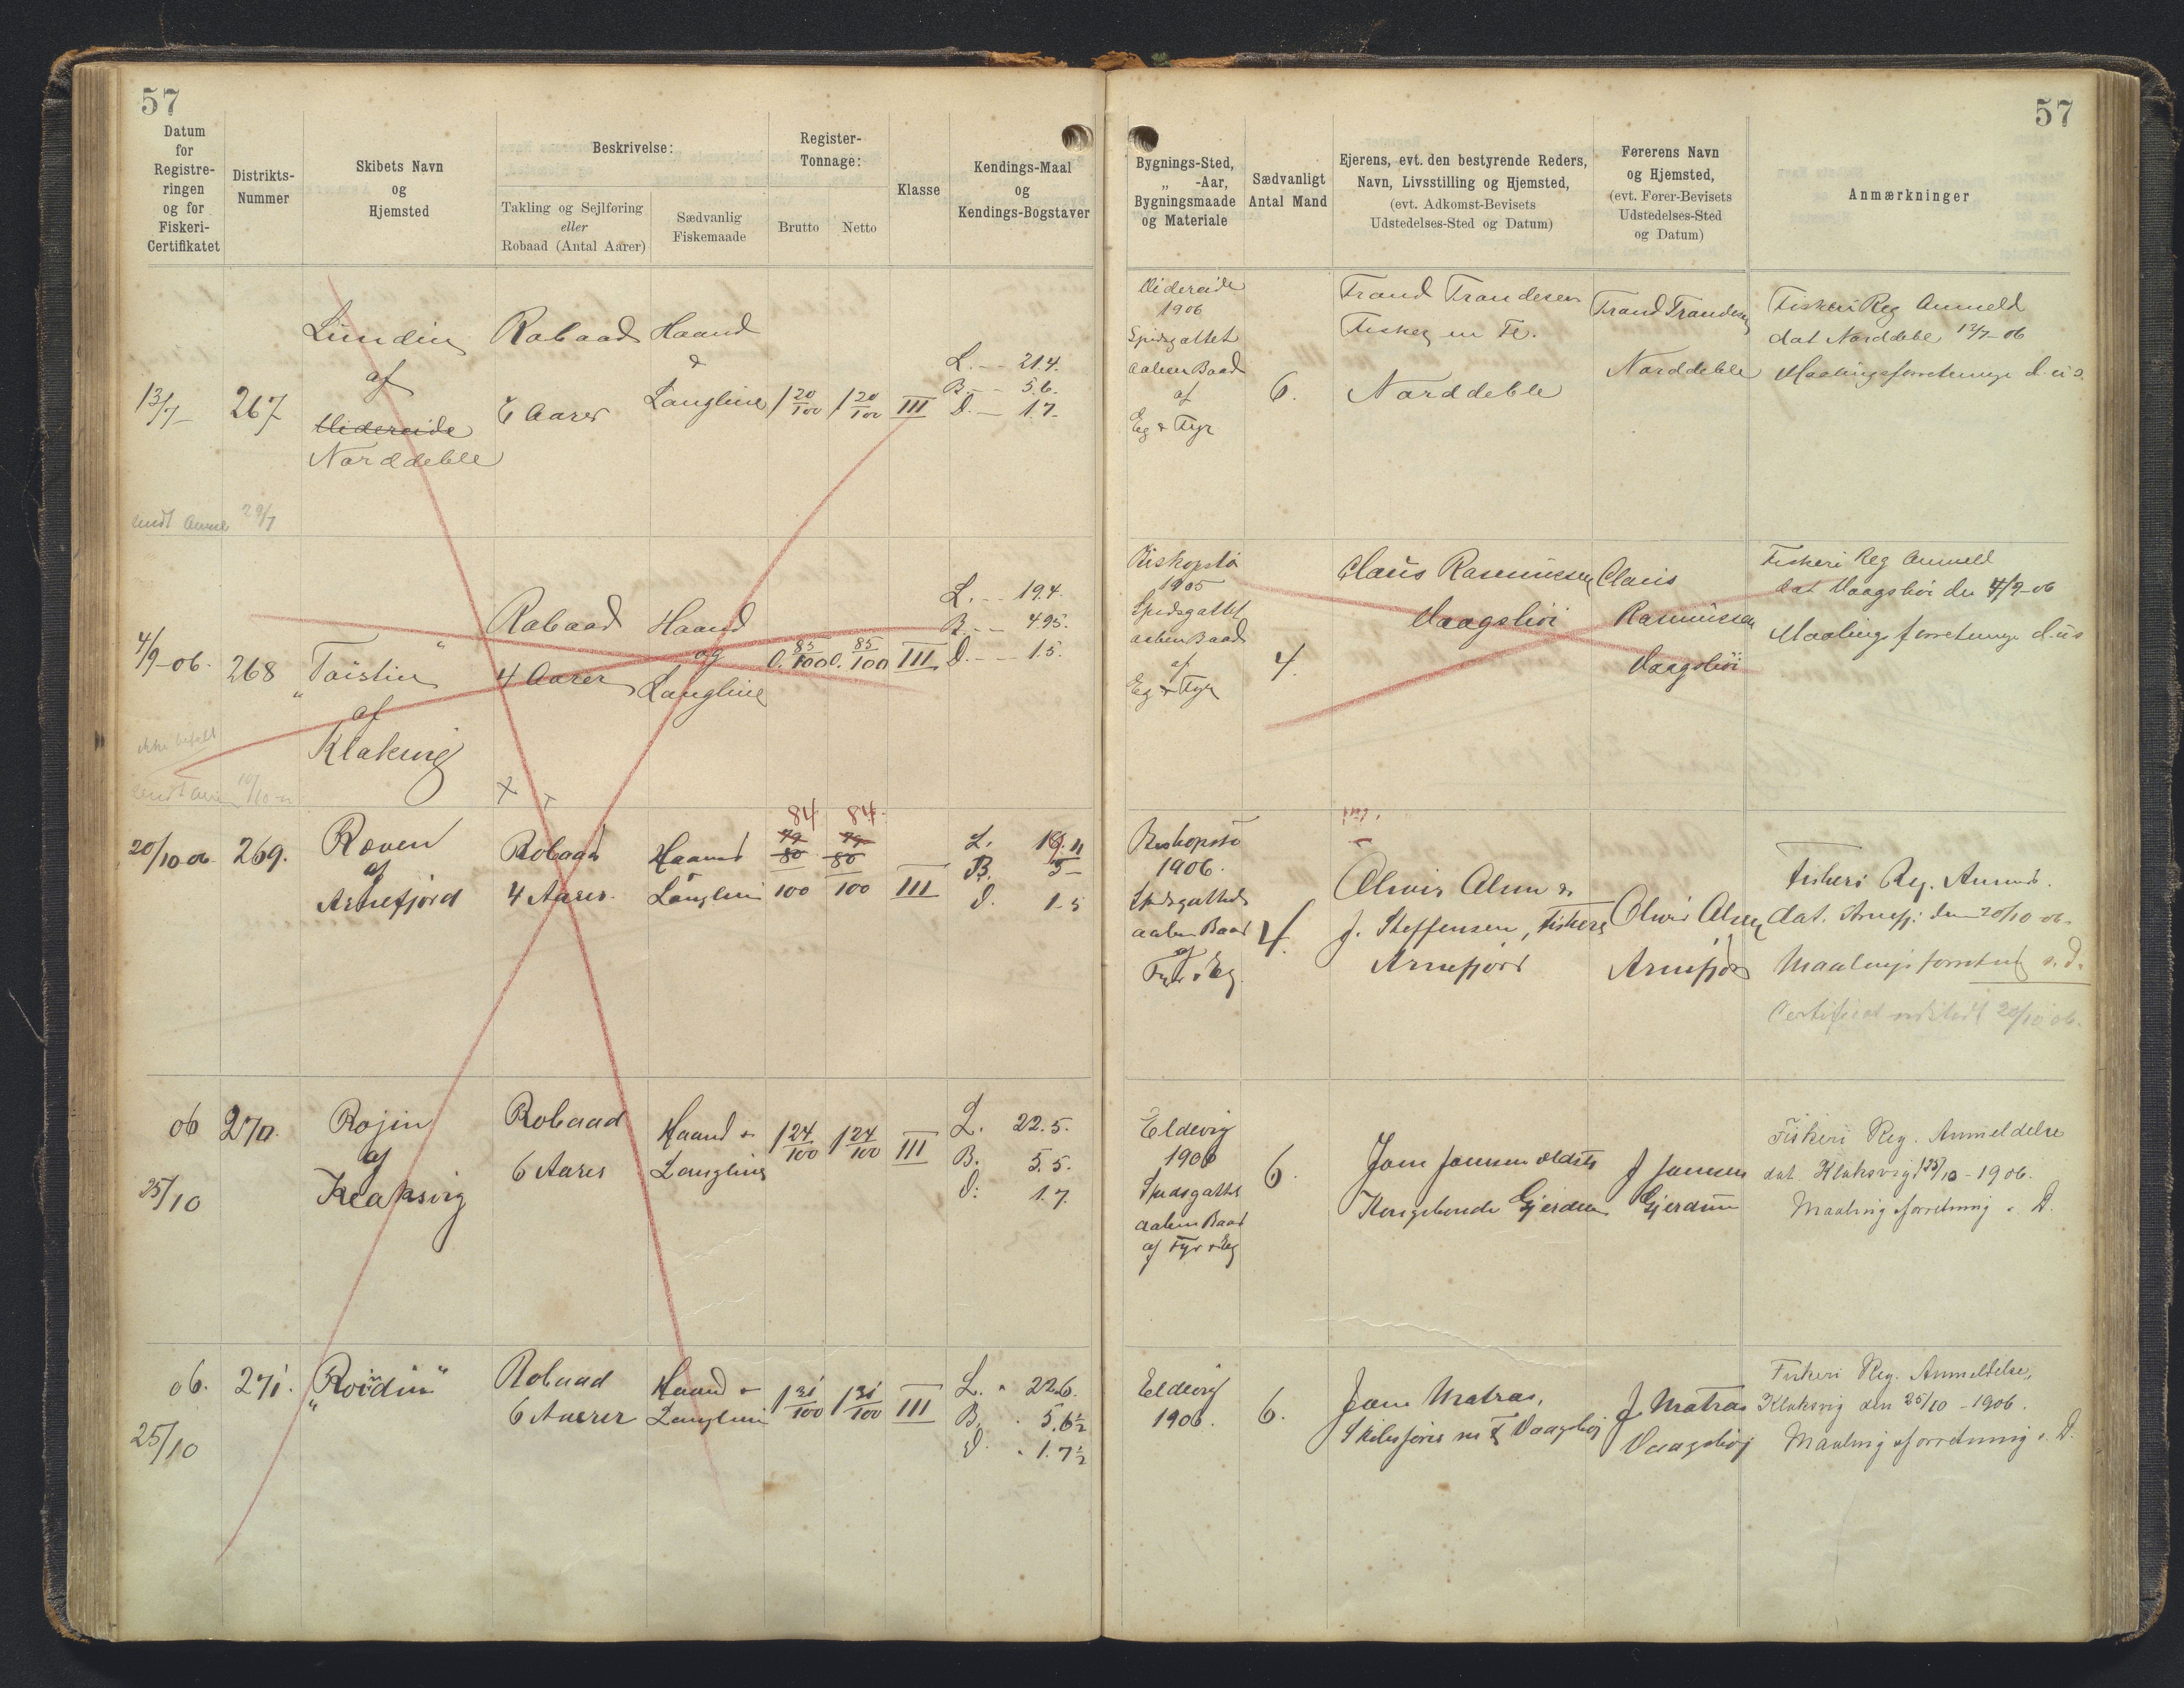 57
57
Datum
for
Registre-
ringen
og for
Fiskeri-
Certifikatet
Distrikts-
Nummer
Skibets Navn
og
Hjemsted
Beskrivelse:
Takling og Sejlføring
eller
Robaad (Antal Aarer)
Sædvanlig
Fiskemaade
Register-
Tonnage:
Brutto
Netto
Klasse
Kendings-Maal
og
Kendings-Bogstaver
Bygnings-Sted,
„ -Aar,
Bygningsmaade
og Materiale
Sædvanligt
Antal Mand
Ejerens, evt. den bestyrende Reders,
Navn, Livsstilling og Hjemsted,
(evt. Adkomst-Bevisets
Udstedelses-Sted og Datum)
Førerens Navn
og Hjemsted,
(evt. Fører-Bevisets
Udstedelses-Sted
og Datum)
Anmærkninger
13/7
267
af
Norddeble
Robaad
6 Aarer
Haand
&
Langline
1 20/100
1 20/100
III
L. — 21.4.
B. — 5.6.
D. — 1.7.
1906
Spidsgattet
aaben Baad
af
Eg & Fyr
6.
Trand Trandesen
Norddeble
Trand Trandesen
Norddeble
Fiskeri Reg Anmeld
dat Norddeble 13/7-06
Maalingsforretninge d.u.s.
29/7
4/9-06.
268
af
Klaksvig
Robaad
4 Aarer
Haand
og
Langline
0. 85/100
0. 85/100
III
L. — 19.4.
B. — 4.95.
D. — 1.5.
1905
Spidsgattet
aaben Baad
af
Eg & Fyr
4.
Claus Rasmussen
Vaagshöi
Claus
Rasmussen
Vaagshöi
Fiskeri Reg Anmeld
dat Vaagshöi den 4/9-06
Maalings forretninge d.u.s
ikke betalt
20/10 06.
269.
Roven
af
Arnefjord
Robaad
4 Aarer.
Haand
&
Langlin
84. 84.
79 79
80 80
100 100
III
L. 19.11
B. 5 —
D. 1.5
1906.
Spidsgattet
aaben Baad
af
Fyr & Eg.
4.
J. Steffensen, Fiskere
Arnefjord
Arnefjor
Fiskeri Reg. Anmel.
dat. Arnefj: den 20/10 06.
Maalings forretn s. D.
Certificat udstedt 20/10 06.
06
25/10
270.
Rojin
af
Klaksvig
Robaad
6 Aarer
Haand &
Langline
1 24/100
1 24/100
III
L. 22.5.
B. 5.5.
D: 1.7.
Eldevig
1906
Spidsgattet
aaben Baad
af Fyr & Eg
6.
Kongsbonde Gjerdum
J Joensen
Gjerdum
Fiskeri Reg. Anmeldelse
dat. Klaksvig 25/10 - 1906.
Maalingsforretning s. D.
06.
25/10
271.
Robaad
6 Aarer
Haand &
Langlini
1 31/100
1 31/100
III
L. " 22.6.
B. . 5.6½
D. . 1.7½
Eldevig
1906.
6.
Joen Matras,
Skibsfører Vaagshøj
J Matras
Vaagshøj
Fiskeri Reg. Anmeldelse,
Klaksvig den 25/10 - 1906.
Maalingsforretning s. D.